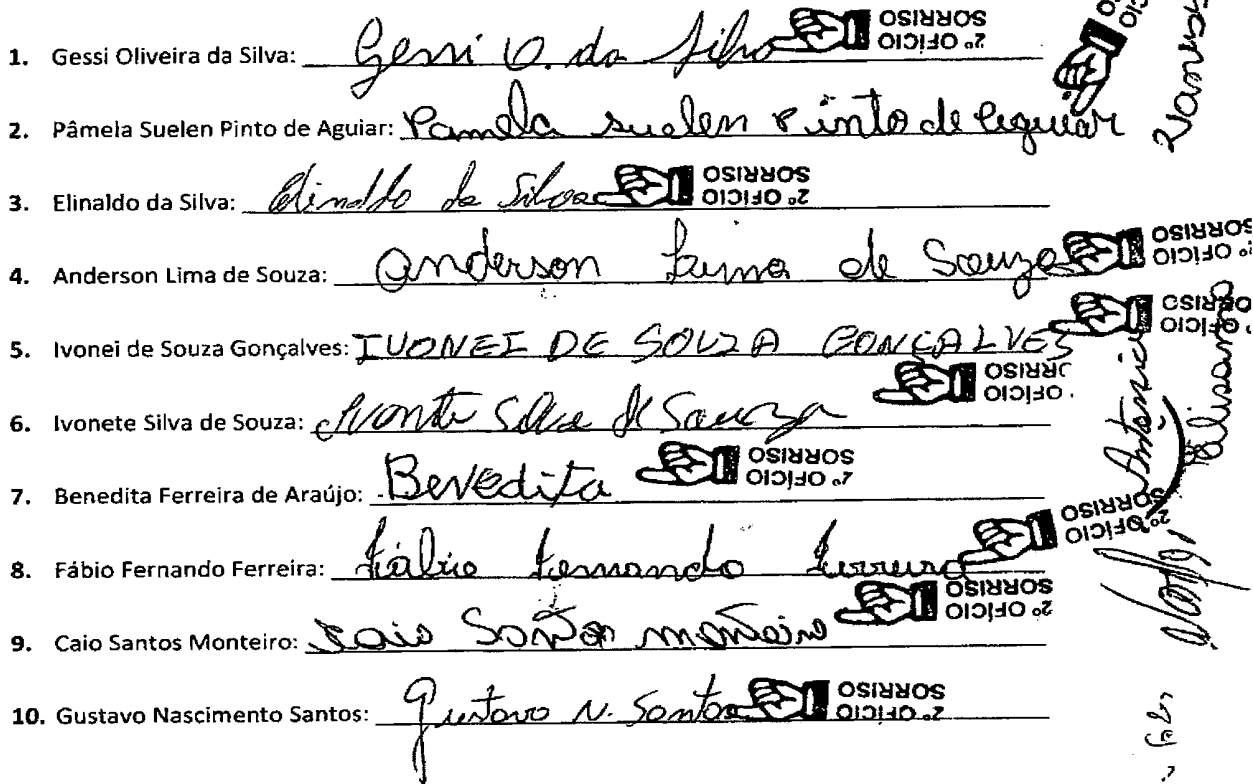 1. Gessi Oliveira da Silva: Gessi O. da Silva 2º OFÍCIO SORRISO
2. Pâmela Suelen Pinto de Aguiar: Pamela suelen Pinto de Aguiar
3. Elinaldo da Silva: Elinaldo da Silva 2º OFÍCIO SORRISO
4. Anderson Lima de Souza: Anderson Lima de Souza 2º OFÍCIO SORRISO
5. Ivonei de Souza Gonçalves: IVONEI DE SOUZA GONÇALVES OFÍCIO SORRISO
6. Ivonete Silva de Souza: Ivonete Silva de Souza OFÍCIO SORRISO
7. Benedita Ferreira de Araújo: Benedita 2º OFÍCIO SORRISO
8. Fábio Fernando Ferreira: Fábio Fernando Ferreira 2º OFÍCIO SORRISO
9. Caio Santos Monteiro: Caio Santos monteiro 2º OFÍCIO SORRISO
10. Gustavo Nascimento Santos: Gustavo N. Santos 2º OFÍCIO SORRISO